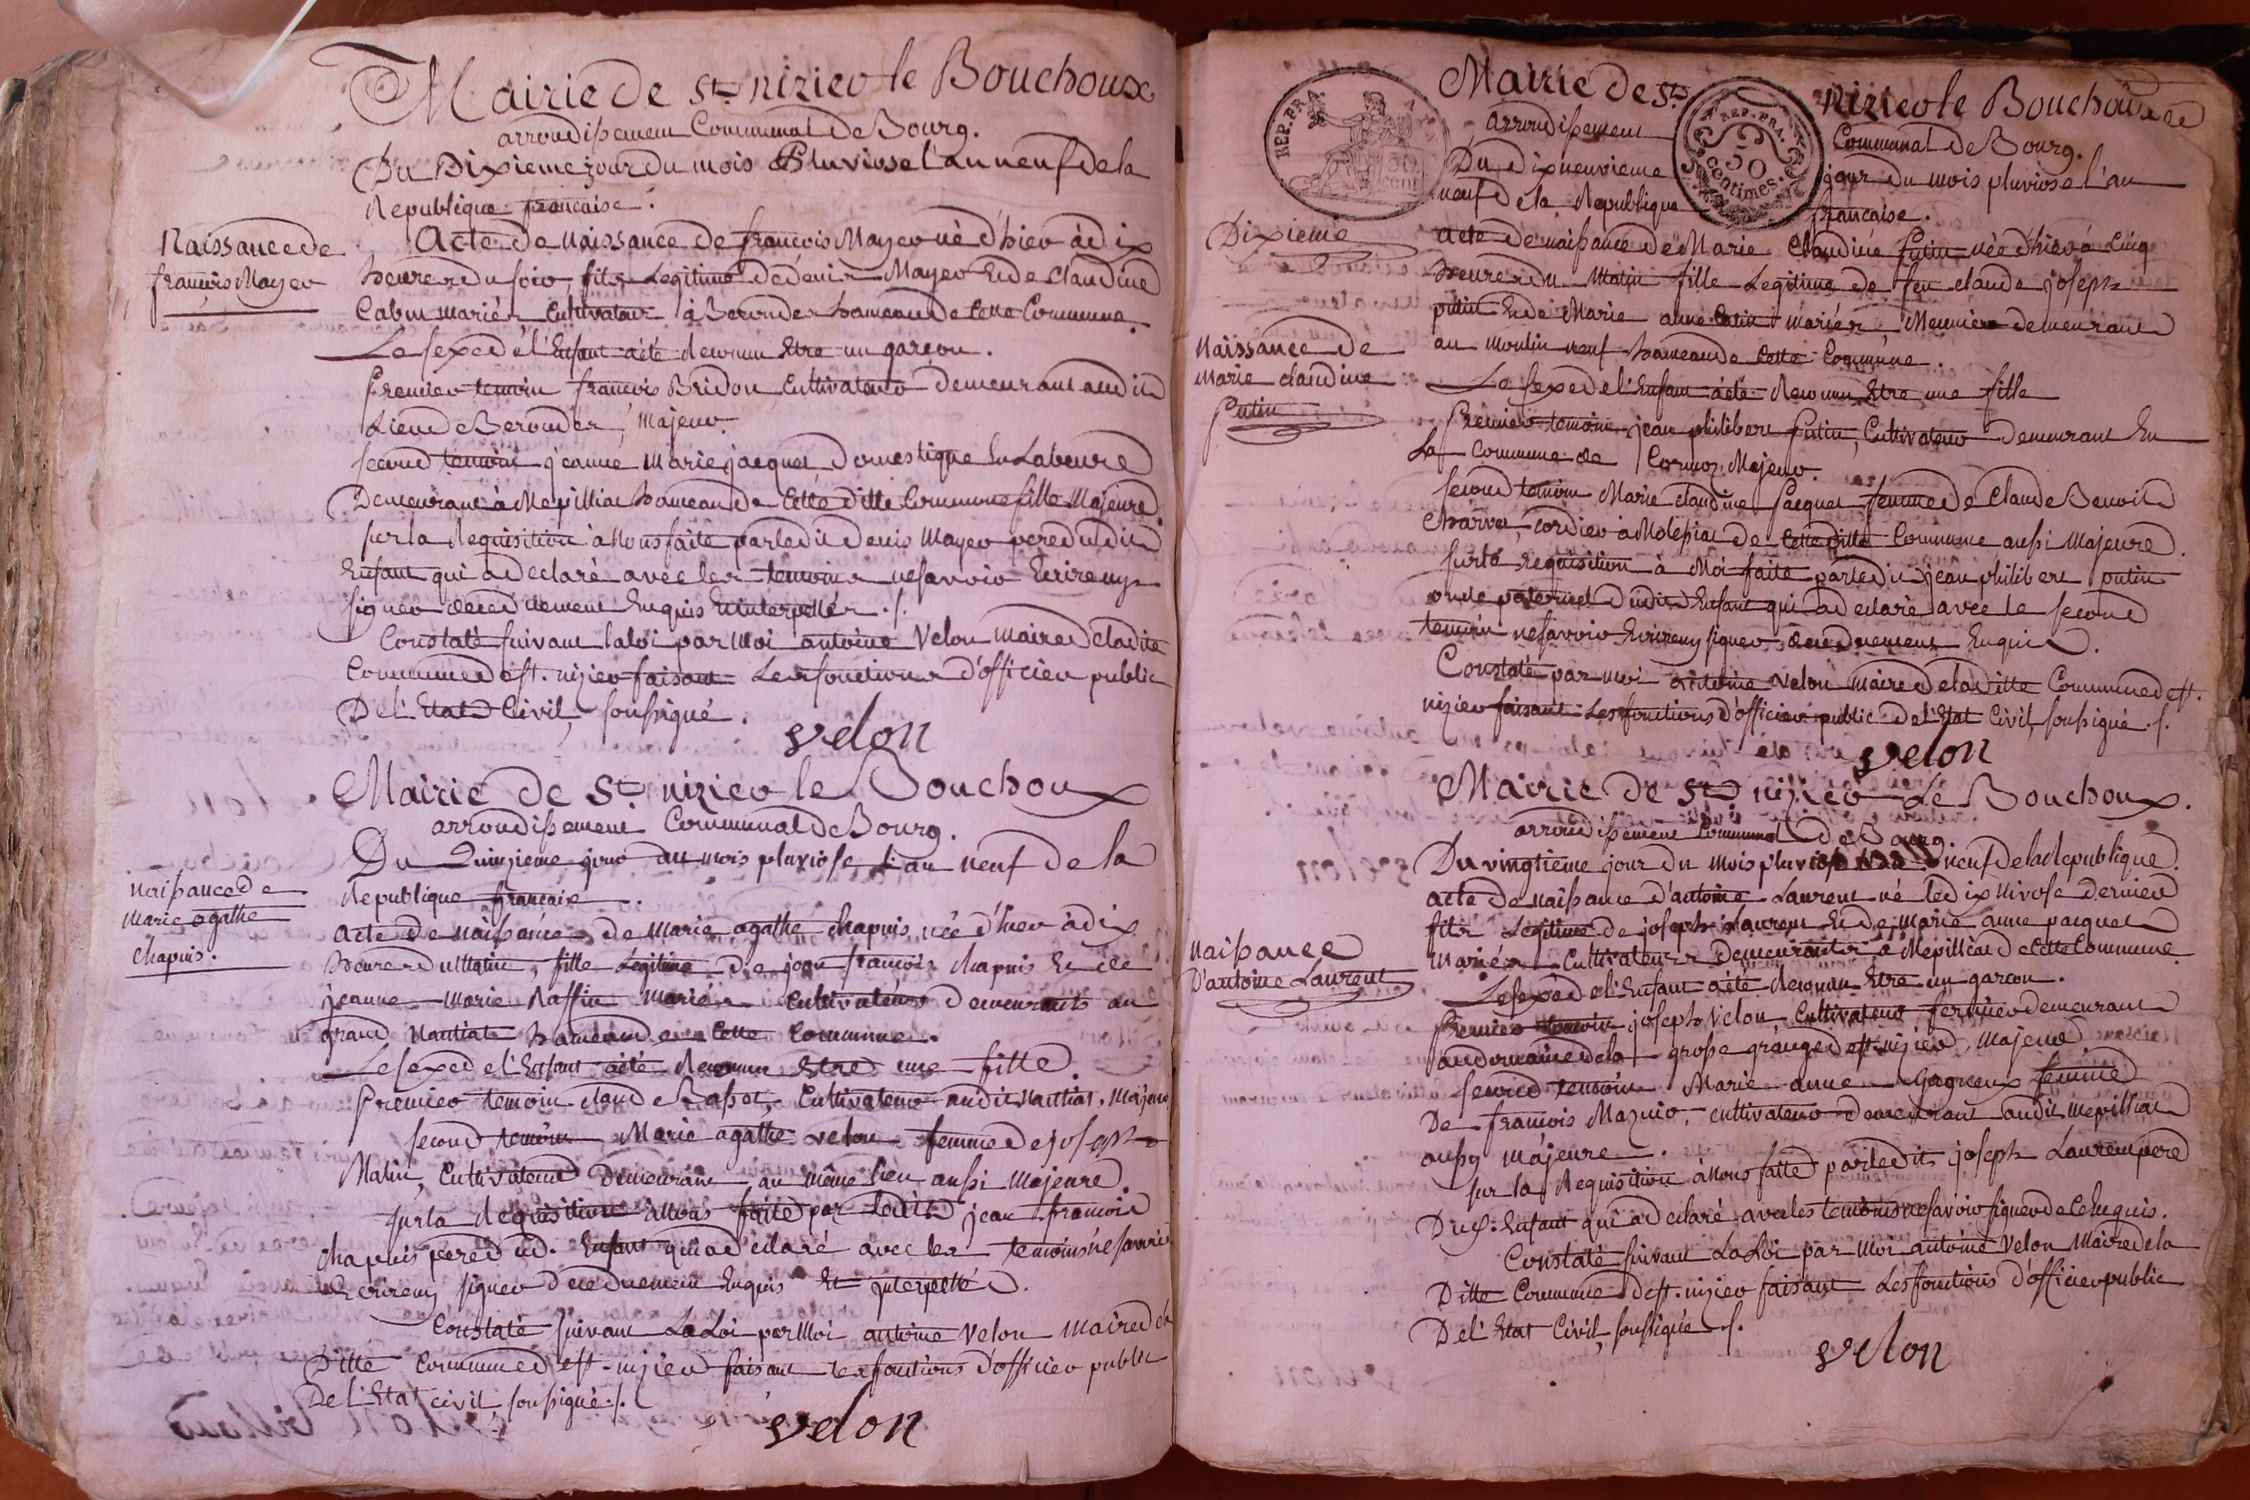 Mairie de St. nizier le Bouchoux
arrondissement Communal de Bourg.
Du Dixieme jour du mois Pluviose l'an neuf de la
Republique francaise.
Naissance de
francois Mayer
Acte de naissance de francois Mayer né d'hier à dix
heures du soir, fils Legitime de denis Mayer Et de Claudine
Cabut mariés Cultivateurs à Berondes hameau de Cette Commune.
Le sexe de l'Enfant a été Reconnu Etre un garcon.
Premier temoin francois Bridon Cultivateur demeurant audit
Lieu de Berondes, Majeur.
second temoin jeanne Marie jacquet Domestique En Labeure
Demeurant à Mepillia hameau de Cette ditte Commune fille Majeure.
sur la Requisition à Nous faite par ledit denis Mayer pere dudit
Enfant qui a declaré avec les temoins ne savoir Ecrire ny
signer de ce duement Enquis Et interpellés ./.
Constaté suivant la loi par Moi antoine Velon maire de ladite
Commune de st. nizier faisant Les fonctions d'officier public
De l'Etat Civil, soussigné.
velon
Mairie de St. nizier le Bouchoux
arrondissement Communal de Bourg.
Du Quinzieme jour du mois pluviose L'an neuf de la
Republique francaise.
naissance de
Marie agathe
Chapuis.
Acte de naissance de Marie agathe Chapuis née d'hier à dix
heures du Matin, fille Legitime de jean francois Chapuis Et de
jeanne Marie Raffin Mariés Cultivateurs demeurants au
grand Nantiat hameau de Cette Commune.
Le sexe de l'Enfant a été Reconnu Etre une fille.
Premier temoin claude Basset, Cultivateur audit Nantiat, Majeur
second temoin Marie agathe velon femme de joseph
Matin, Cultivateur Demeurant au même lieu aussi Majeure.
sur la Requisition à Nous faite par Ledit jean francois
Chapuis pere dud. Enfant qui a declaré avec les temoins ne savoir
Ecrire ny signer de ce duement Enquis Et interpellé.
Constaté suivant La Loi par Moi antoine Velon Maire de la
Ditte Commune de st. nizier faisant les fonctions d'officier public
De l'Etat civil soussigné ./.
velon
REP. FRA.
REP. FRA.
50
centimes.
Mairie de St. nizier le Bouchoux
arrondissement Communal de Bourg.
Du dix neuvieme jour du mois pluviose l'an
neuf de la Republique francaise.
Dixieme
Naissance de
Marie claudine
Putin
Acte de naissance de Marie Claudine Putin née d'hier à Cinq
heures du Matin fille Legitime de feu claude joseph
putin Et de Marie anne Catin mariés, Meuniers demeurant
au Moulin neuf hameau de Cette Commune.
Le sexe de l'Enfant a été Reconnu Etre une fille
Premier temoin jean philibert Putin, Cultivateur demeurant En
La Commune de Cormoz, Majeur.
second temoin Marie claudine Jacquet femme de Claude Benoit
Charvet, Cordier à Molepiat de Cette ditte Commune aussi Majeure.
sur la requisition à Moi faite par ledit jean philibert putin
oncle paternel dudit Enfant qui a declaré avec le second
temoin ne savoir Ecrire ny signer de ce duement Enquis.
Constaté par moi antoine velon maire de la ditte Commune de st.
nizier faisant Les fonctions d'officier public de l'Etat Civil, soussigné ./.
velon
Mairie de St. nizier Le Bouchoux.
arrondissement Communal de Bourg.
Du vingtieme jour du mois pluviose neuf de la Republique.
naissance
D'antoine Laurent
Acte de naissance d'antoine Laurent né le dix Nivose dernier
fils Legitime de joseph Laurent Et de Marie anne pacquet
Mariés Cultivateurs Demeurants à Mepilliat de Cette Commune.
Le sexe de l'Enfant a été Reconnu Etre un garcon.
Premier temoin joseph Velon, Cultivateur fermier demeurant
au domaine de la grosse grange de st nizier, Majeur
second temoin Marie anne Gagneux femme
De francois Maznio, cultivateur demeurant audit Mepilliat
aussy majeure.
sur la Requisition à Nous faite par ledit joseph Laurent pere
Dud. Enfant qui a declaré avec les temoins ne savoir signer de Ce Enquis.
Constaté suivant La Loi par Moi antoine Velon Maire de la
Ditte Commune de st. nizier faisant Les fonctions d'officier public
De l'Etat Civil, soussigné ./.
velon